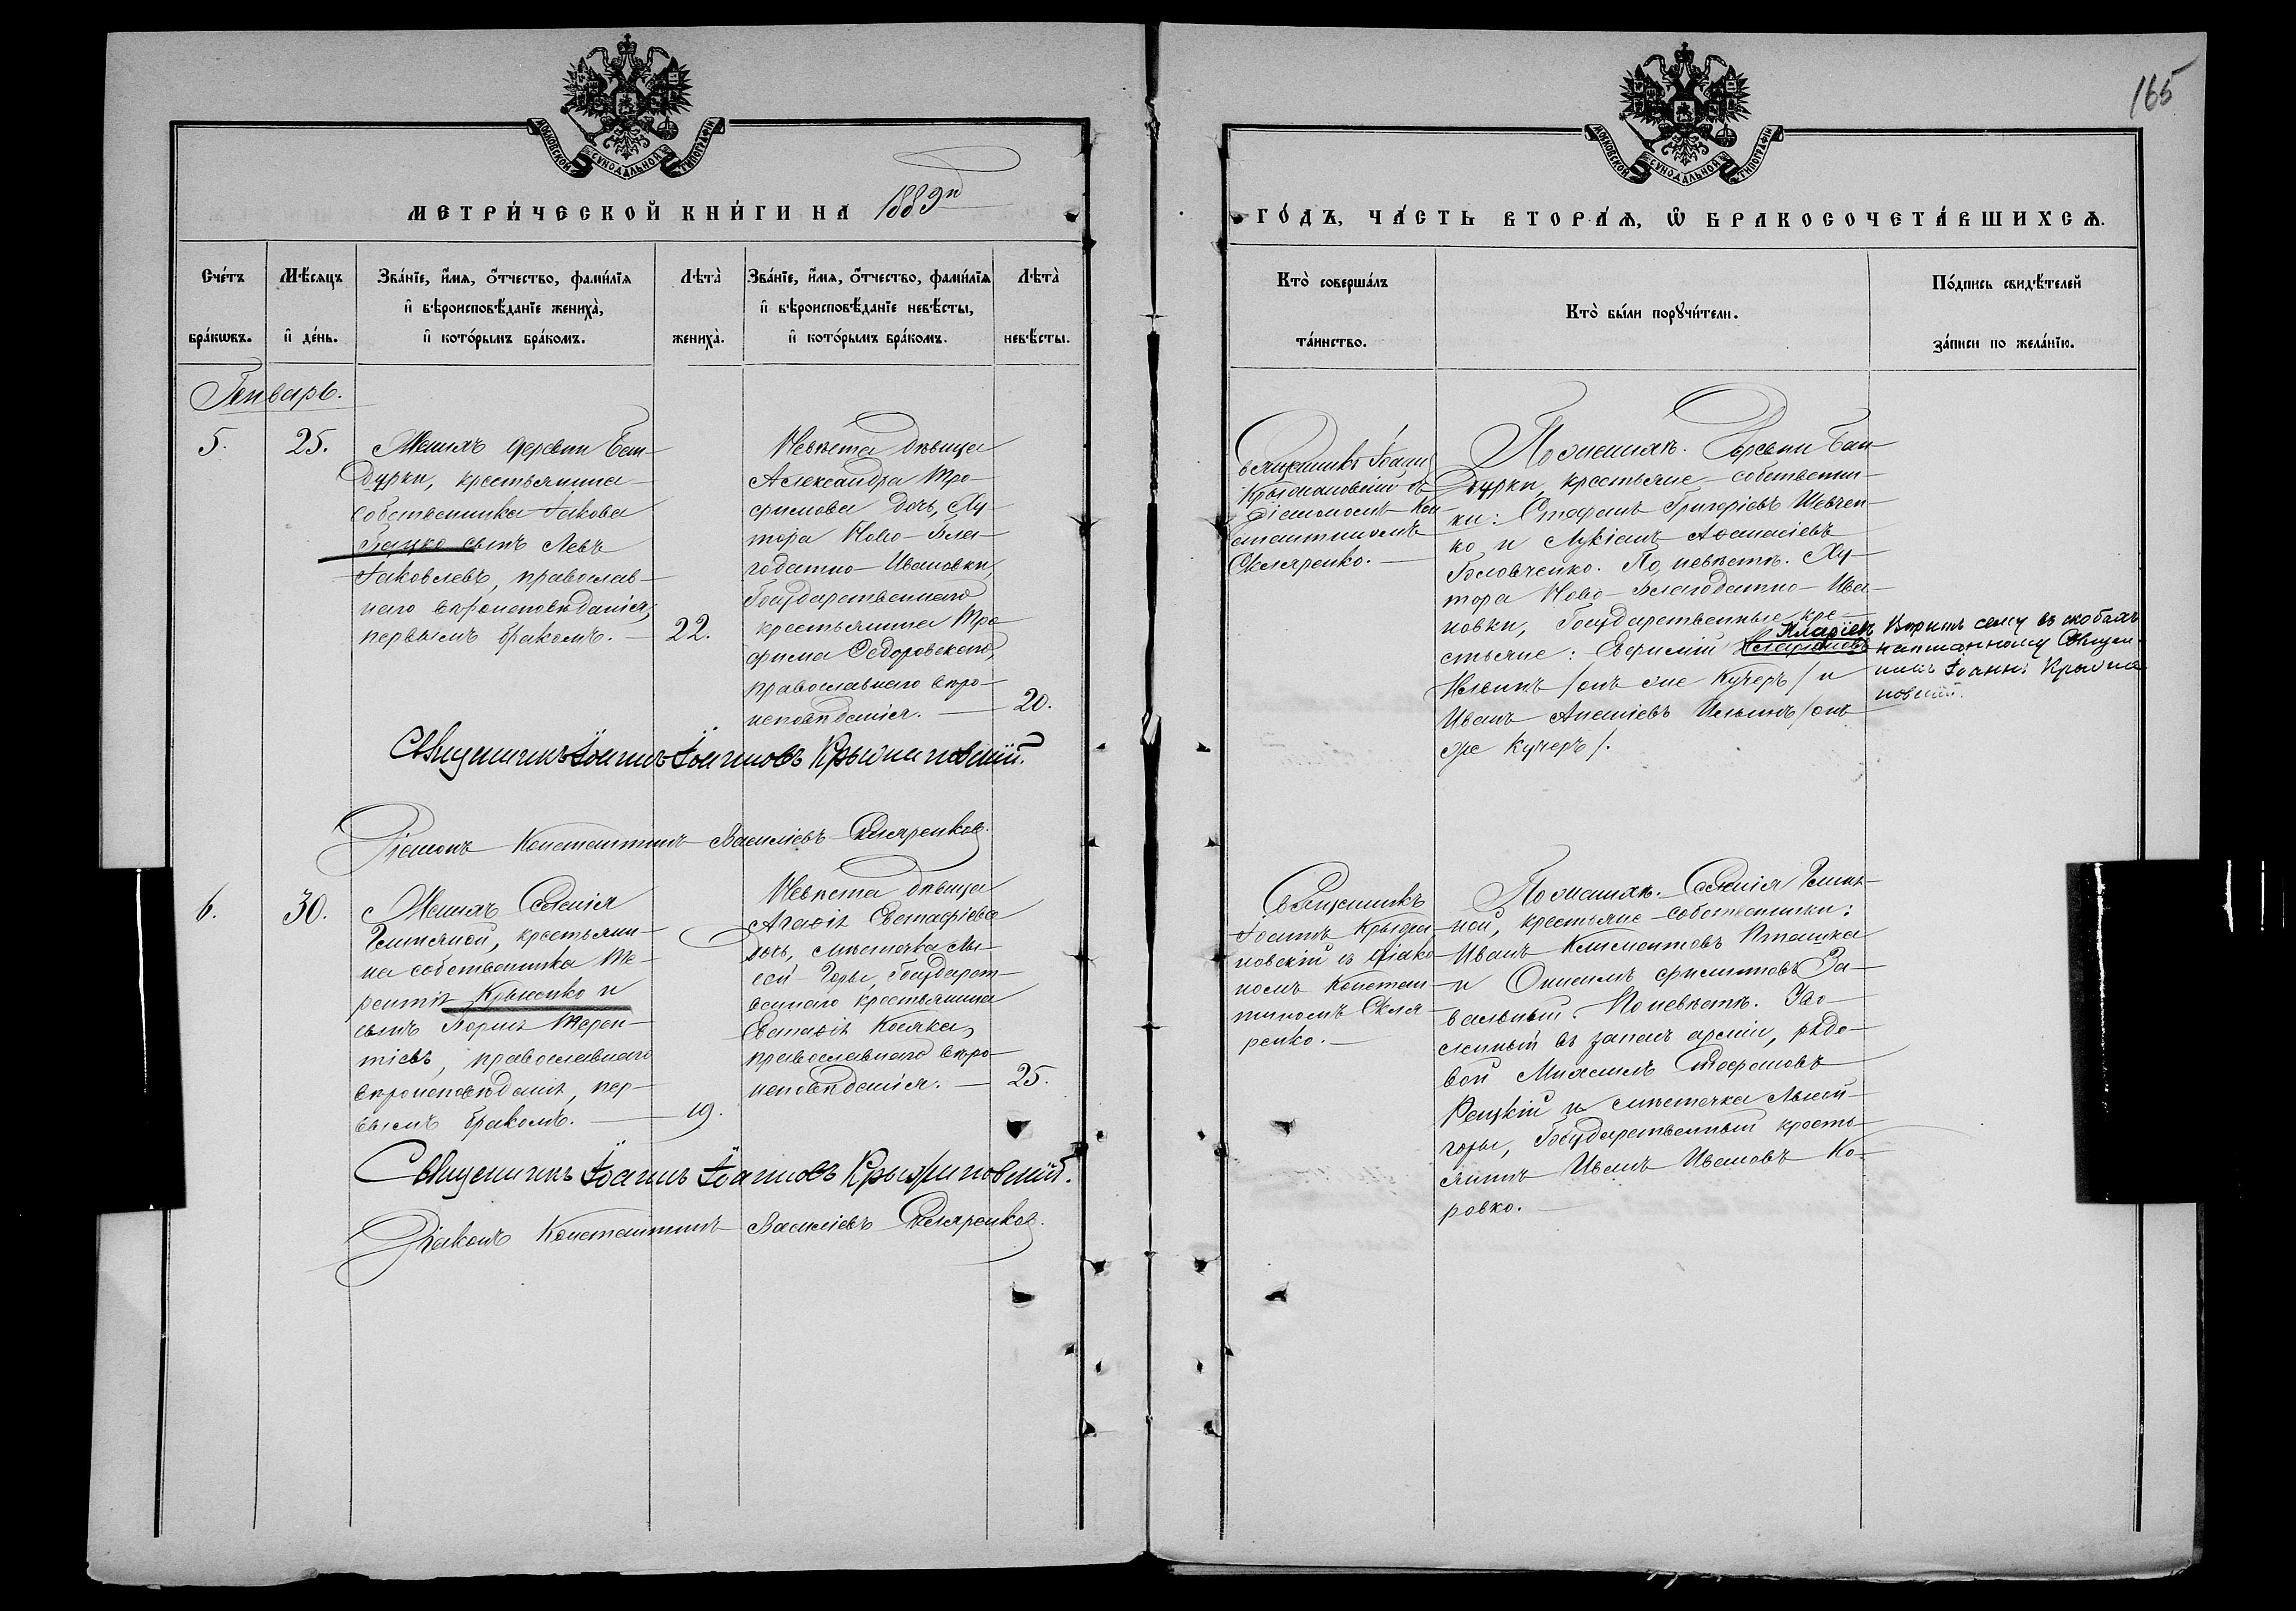 165
МОСКОВСКОЙ СУНОДАЛЬНОЙ ТИПОГРАФІИ
МОСКОВСКОЙ СУНОДАЛЬНОЙ ТИПОГРАФІИ
МЕТРИ́ЧЕСКОЙ КНИ́ГИ НА 1889й
ГО́ДЪ, ЧА́СТЬ ВТОРА́Ѧ, Ѽ БРАКОСОЧЕТА́ВШИХСѦ.
Сче́тъ бра́кѡвъ.
Мѣ́сяцъ и҆ де́нь.
Зва́нїе, и҆́мѧ, ѻ҆́тчество, фами́лїѧ
и҆ вѣроисповѣ́данїе жениха̀,
и҆ кото́рымъ бра́комъ.
Лѣта̀ жениха̀.
Зва́нїе, и҆́мѧ, ѻ҆́тчество, фами́лїѧ
и҆ вѣроисповѣ́данїе невѣ́сты,
и҆ кото́рымъ бра́комъ.
Лѣта̀ невѣ́сты.
Кто̀ соверша́лъ
та́инство.
Кто̀ бы́ли порꙋчи́тели.
По́дпись свидѣ́телей
за́писи по жела́нїю.
Генварь.
5.
25.
Женихъ деревни Бан-
дурки, крестьянина
собственника Іакова
Бацко сынъ Левъ
Іаковлевъ, православ-
наго вѣроисповѣданія,
первымъ бракомъ. —
22.
Невѣста дѣвица
Александра Тро-
фимова дочь, Ху-
тора Ново-Бла-
годатно-Ивановки,
Государственнаго
крестьянина Тро-
фима Седоровскаго,
православнаго вѣро-
исповѣданія. —
20.
Священникъ Іоаннъ
Крыжановскій съ
діакономъ Кон-
стантиномъ
Скляренко. —
По женихѣ. Деревни Бан-
дурки, крестьяне-собственни-
ки: Стефанъ Григоріевъ Шевчен-
ко и Лукіанъ Аѳанасіевъ
Головченко. По невѣстѣ. Ху-
тора Ново-Благодатно-Ива-
новки, Государственные кре-
стьяне: Евфимій
Ильинъ /онъ же Кучеръ/ и
Иванъ Ананіевъ Ильинъ /онъ
же Кучеръ/.
Вѣрить сему въ скобахъ
написанному Священ-
никъ Іоаннъ Крыжа
новскій.
Священникъ Іоаннъ Іоанновъ Крыжановскій.
Діаконъ Константинъ Василіевъ Скляренков.
6.
30.
Женихъ Селенія
крестьяни-
на собственника Те-
рентія Крысенко и
сынъ Борисъ Терен-
тіевъ, православнаго
вѣроисповѣданія, пер-
вымъ бракомъ. —
19.
Невѣста дѣвица
Агаѳія Евстафіева
дочь, мѣстечка Лы-
сой Горы, Государст-
веннаго крестьянина
Евстафія Косяка,
православнаго вѣро-
исповѣданія. —
25.
Священникъ
Іоаннъ Крыжа
новскій съ діако-
номъ Констан-
тиномъ Скля-
ренко. —
По женихѣ. Селенія
крестьяне-собственники:
Иванъ Климентовъ Пташка
и Онисимъ Филиповъ За-
вальный. По невѣстѣ. Уво-
ленный въ запасъ арміи, рядо-
вой Михаилъ Стефановъ
Рецкій и мѣстечка Лысой
горы, Государственный кресть-
янинъ Иванъ Ивановъ Ко-
ровко. —
Священникъ Іоаннъ Іоанновъ Крыжановскій.
Діаконъ Константинъ Василіевъ Скляренков.